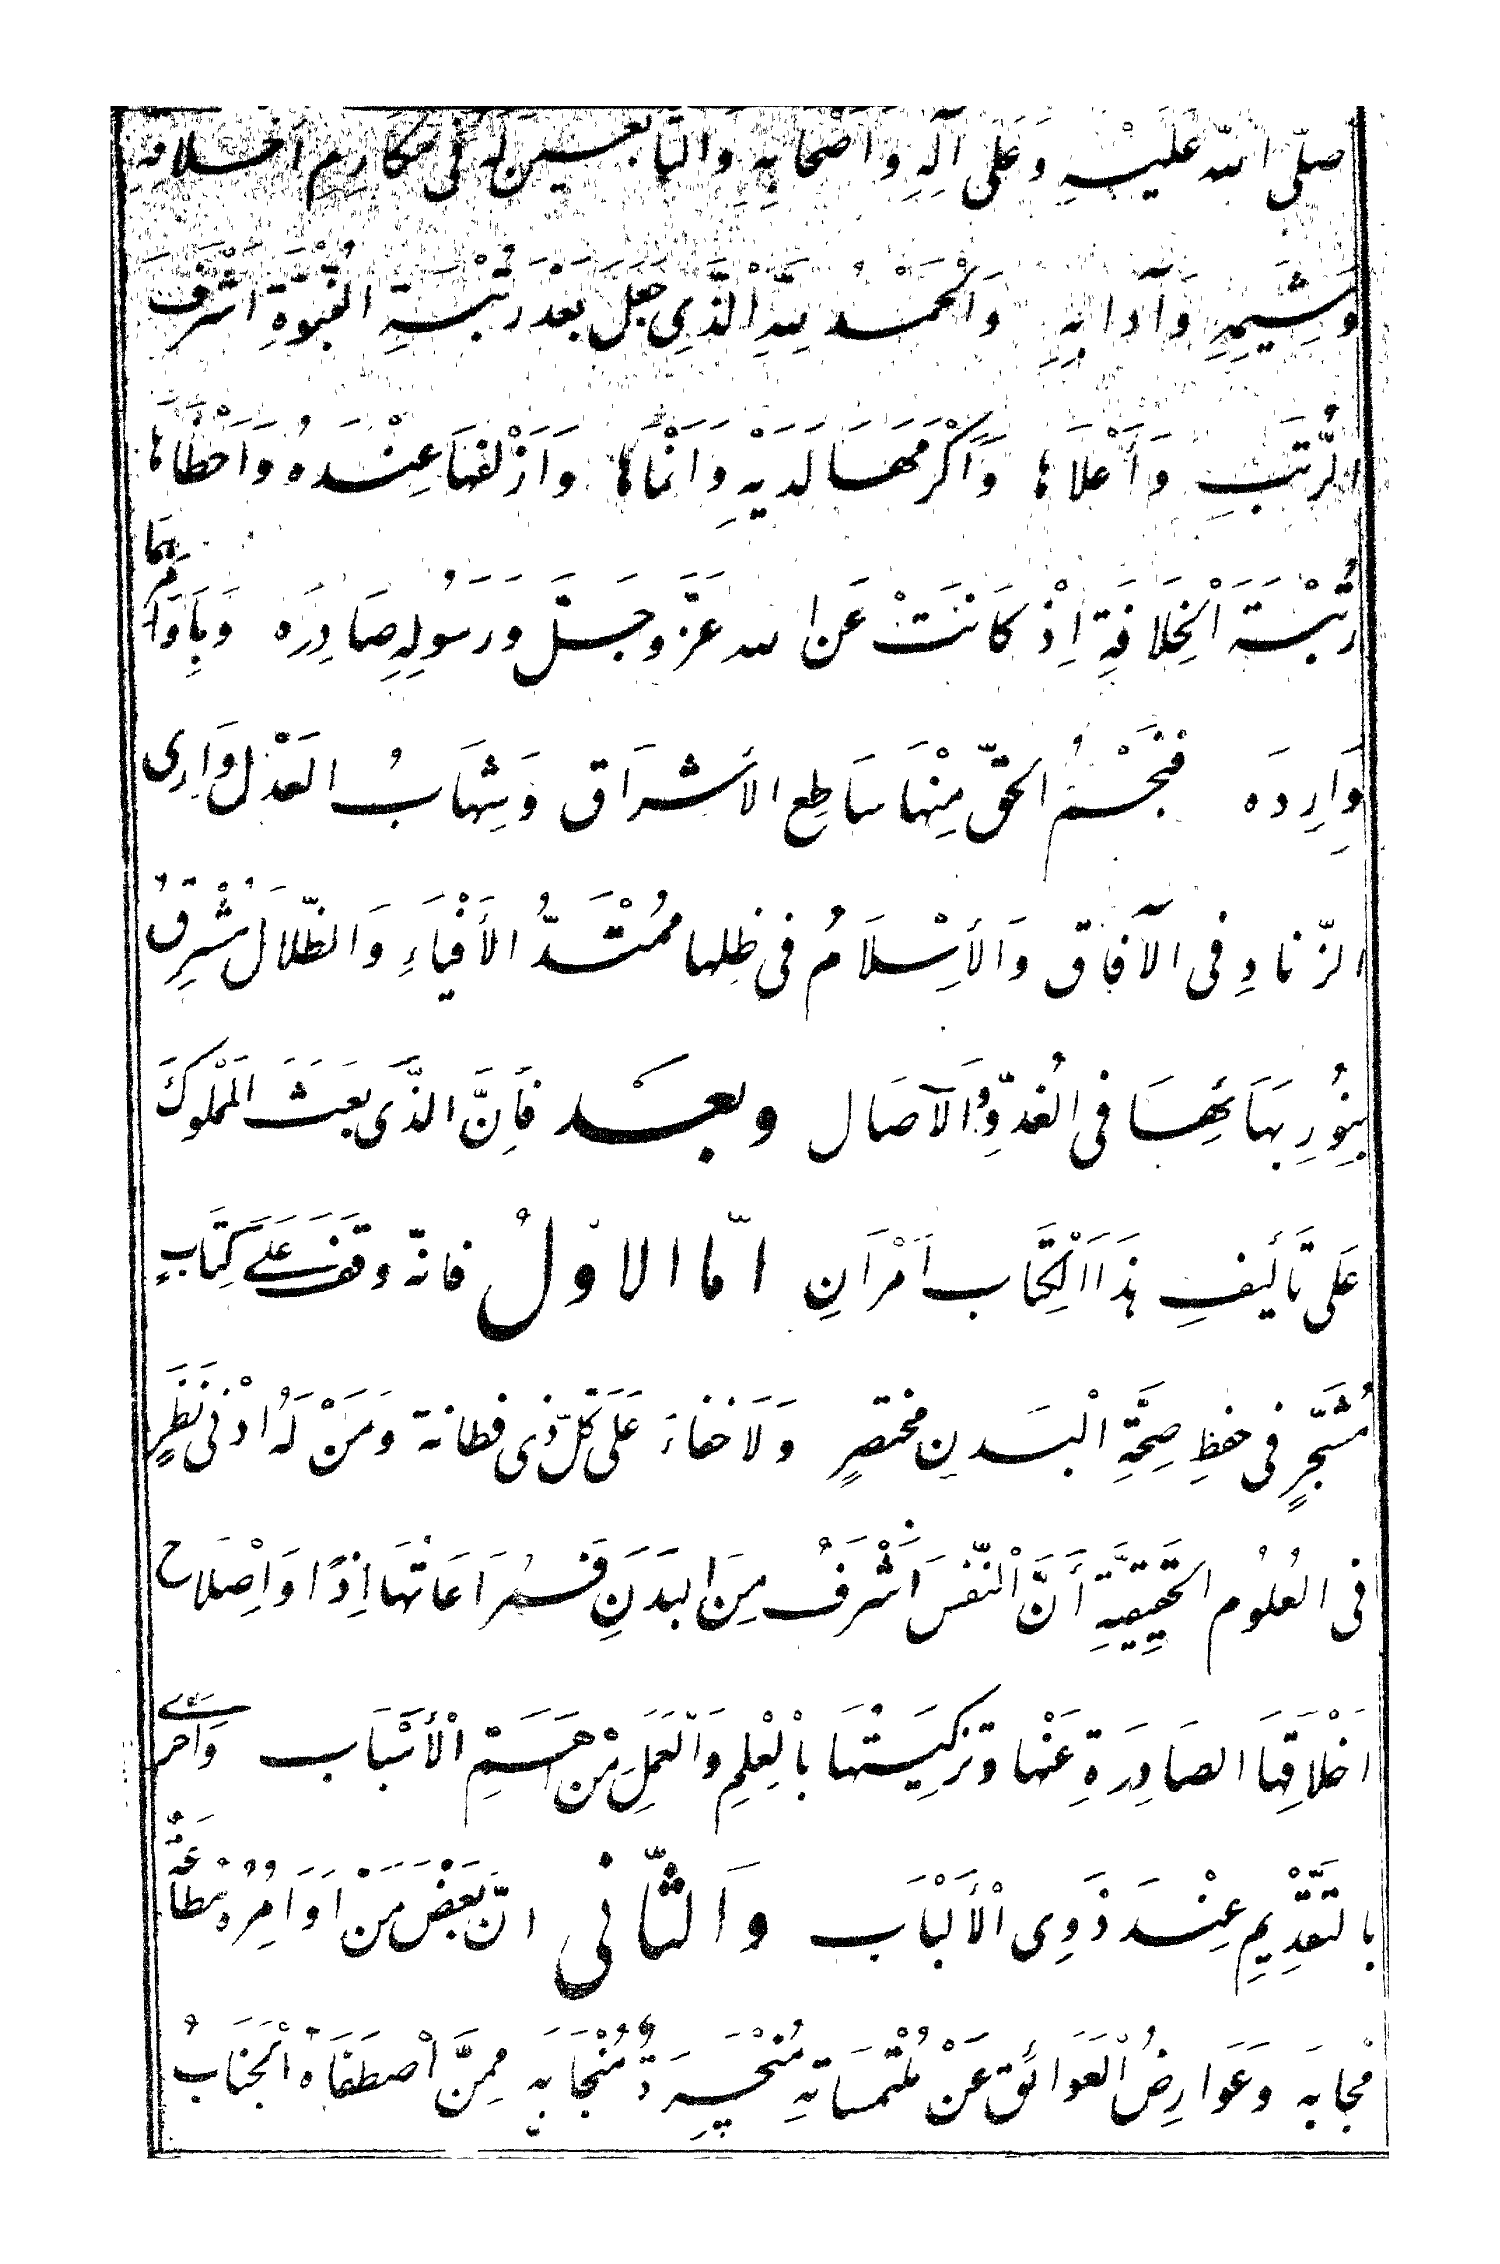 صلّى الله عَلَيْهِ وعَلى آلِهِ وَاَصْحَابِهِ وَالتَّابعين لَهُ فى مكارِمِ اَخلاقِهِ
وَشِيَمِهِ وَآدابِهِ وَالْحَمْدُ لِلّهِ الَّذِى جَعَلَ بَعْدَ رُتْبَةِ النُّبُوَّةِ اَشْرَفَ
الرُّتَبِ وَأَعْلاَها وَاَكْرَمَهَا لَدَيْهِ وَاَنْمَاهَا وَاَزْلَفَهَا عِنْدَهُ وَاَحْظَاهَا
رُتْبَةَ الْخِلَافَةِ اِذْ كَانَتْ عَنِ الله عَزَّ وجَلَّ وَرَسُولِهِ صَادِرَه وَبِاَوَامِرِهِمَا
وَارِده فَنَجْمُ الحَقِّ مِنْهَا سَاطِع الاَشْرَاق وَشِهَابُ العَدْلِ وَارِى
الزّنادِ فى الآفَاق وَالأِسْلَامُ فى ظِلها مُمْتَدُّ الأَفْيَاءِ وَالظّلال مُشْرِقٌ
بِنُورِ بهَائِهَا فى الغُدُوِّ وَالآصَال وبعد فَاِنَّ الذّى بَعَثَ المَمْلُوكَ
عَلى تَأليفِ هذَا الْكِتَاب اَمْرَانِ امّا الاوّلُ فانّه وقف عَلى كِتَابٍ
مُشَجَّرٍ فى حفظِ صِحَّةِ الْبَدنِ مختصرٍ وَلَا خفاءَ عَلى كلِّ ذِى فطانة وَمَنْ لَهُ ادْنى نَظَرٍ
فى العُلُوم الحَقِيقِيَّةِ أَنَّ النّفْسَ اَشْرَفُ مِنَ البَدَنِ فَمُرَاعَاتهَا اِذًا وَاِصْلَاح
اَخْلاقِهَا الصَادِرَةِ عَنْها وتزكِيَتُهَا بِالْعِلْمِ وَالْعَمَلِ مِنْ اَهَمِّ الأَسْبَاب وَاَحرى
بالتَّقْدِيمِ عِنْدَ ذَوِى الْأَلْبَاب وَالثّانى انّ بَعْضَ مَنْ اَوَامِرُهُ مُطَاعَةٌ
مُجابَه وَعَوَارِضُ الْعَوَائِقِ عَنْ مُلْتَمَسَاتِهِ مُنْحَسِرَةٌ مُنْجَابَه مِمَّنَ اصْطَفَاهُ الْجَنَابُ